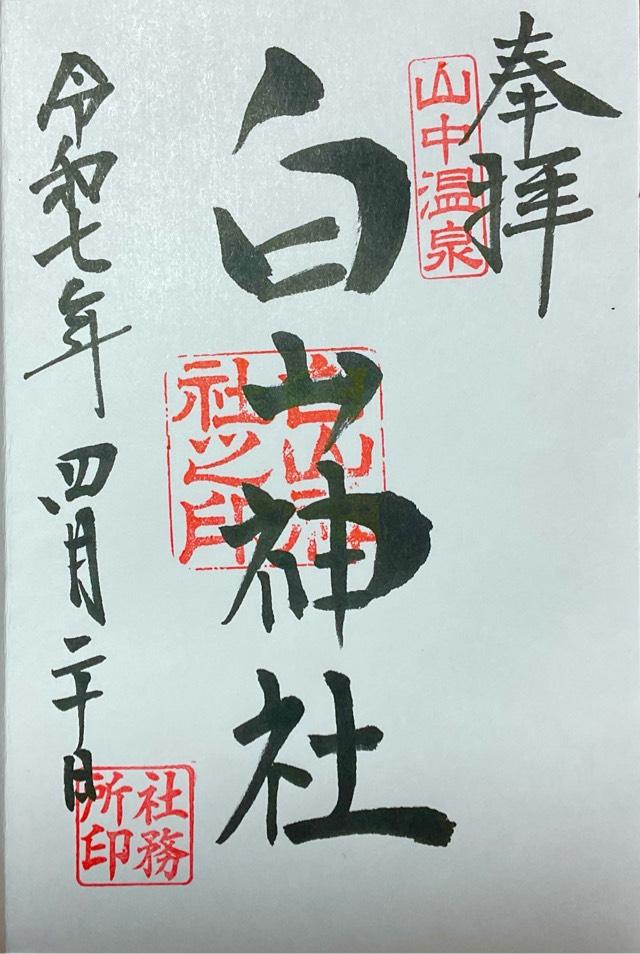 奉拝
山中温泉
白山神社
白山神社之印
令和七年四月二十日
社務所印